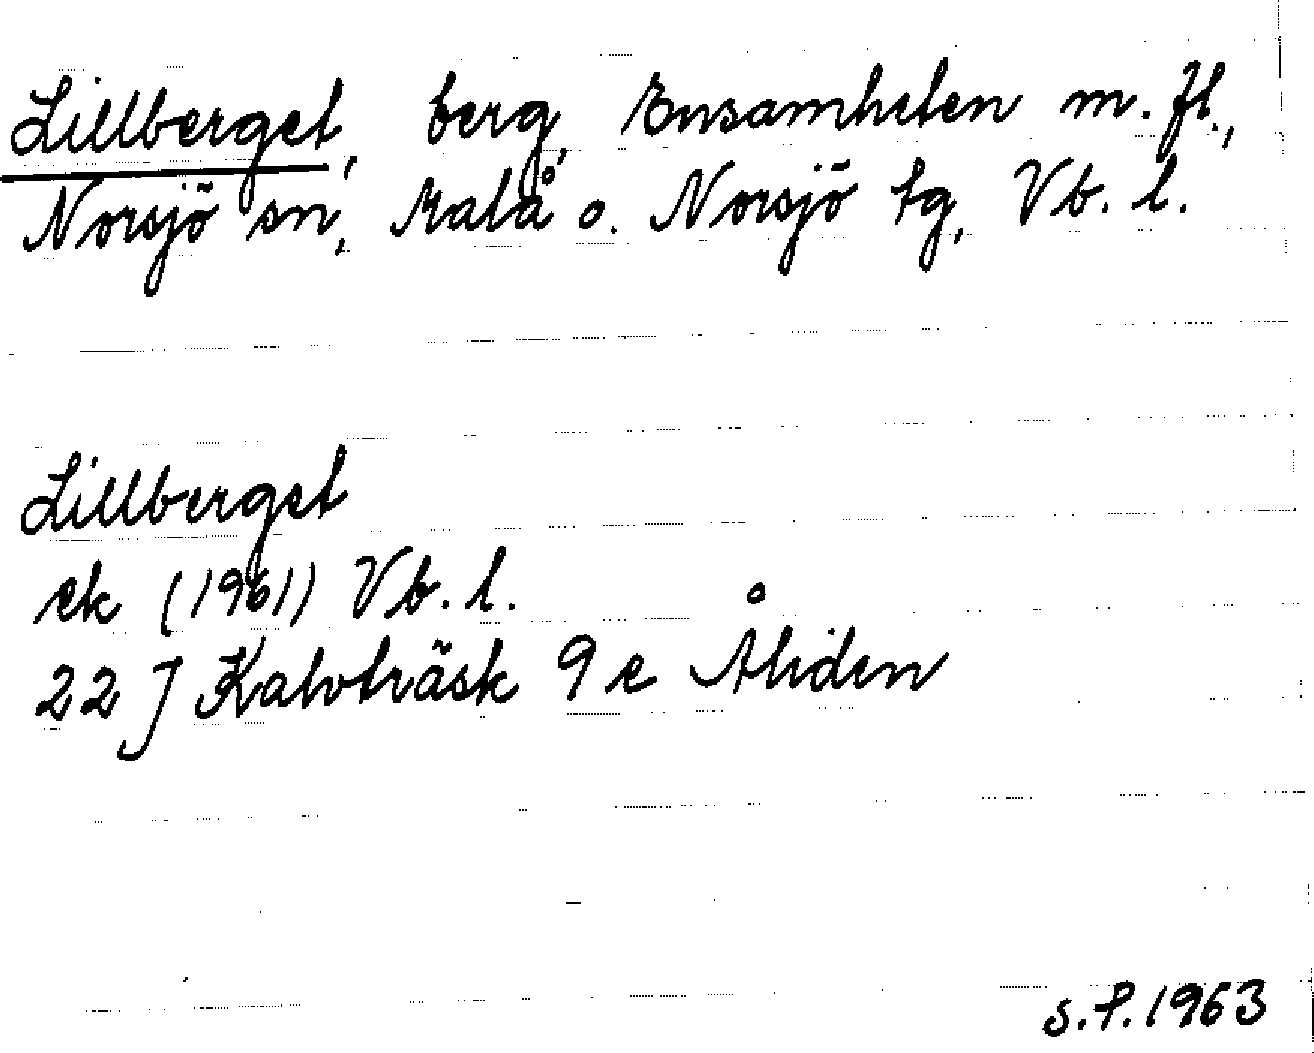 Lillberget, berg, Ensamheten m. fl.,
Norsjö sn, Malå o. Norsjö tg, Vb. l.
Lillberget
ek (1961) Vb. l.
22 J Kalvträsk 9 e Åliden
S.P. 1963